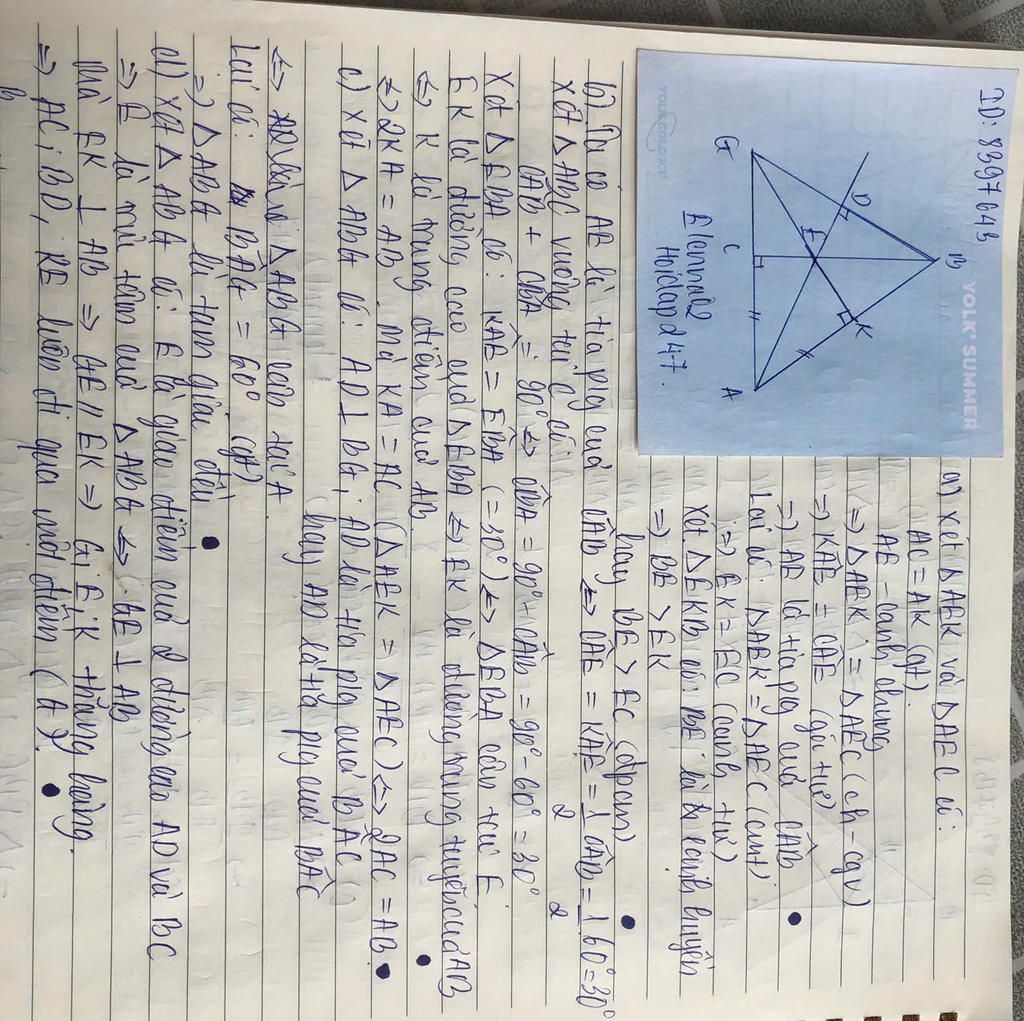 YOLK' SUMMER
ID: 8397648
B
D
K
E
G
C
A
Elanna2
Hoidap247.
a) Xét ΔAEK và ΔAEC có:
AC = AK (gt).
AE - cạnh chung
=> ΔAEK = ΔAEC (ch - cgv)
=> KÂE = CÂE (góc tứ)
=> AE là tia pg của CÂB
Lại có: ΔAEK = ΔAEC (cmt)
=> EK = EC (cạnh tứ)
Xét ΔEKB có: BE là cạnh huyền
=> BE > EK
hay BE > EC (đpcm)
b) Ta có AE là tia pg của CÂB <=> CÂE = KÂE = 1/2 CÂB = 1/2 60° = 30°
Xét ΔABC vuông tại C có:
CÂB + CB̂A = 90° <=> CB̂A = 90° + CÂB = 90° - 60° = 30°
Xét ΔEBA có: KAE = EBA (= 30°) <=> ΔEBA cân tại E.
EK là đường cao của ΔEBA <=> EK là đường trung tuyến của AB
<=> K là trung điểm của AB
<=> 2KA = AB. Mà KA = AC (ΔAEK = ΔAEC) <=> 2AC = AB
c) Xét ΔABG có: AD ⊥ BG; AD là tia pg của BÂC
hay AD là tia pg của BÂC
<=> ΔABG cân tại A.
Lại có: BÂG = 60° (gt)
=> ΔABG là tam giác đều
d) Xét ΔABG có: E là giao điểm của 2 đường cao AD và BC
=> E là trực tâm của ΔABG <=> GE ⊥ AB
Mà EK ⊥ AB => GE // EK => G; E; K thẳng hàng.
=> AC; BD, KE luôn đi qua một điểm (A).